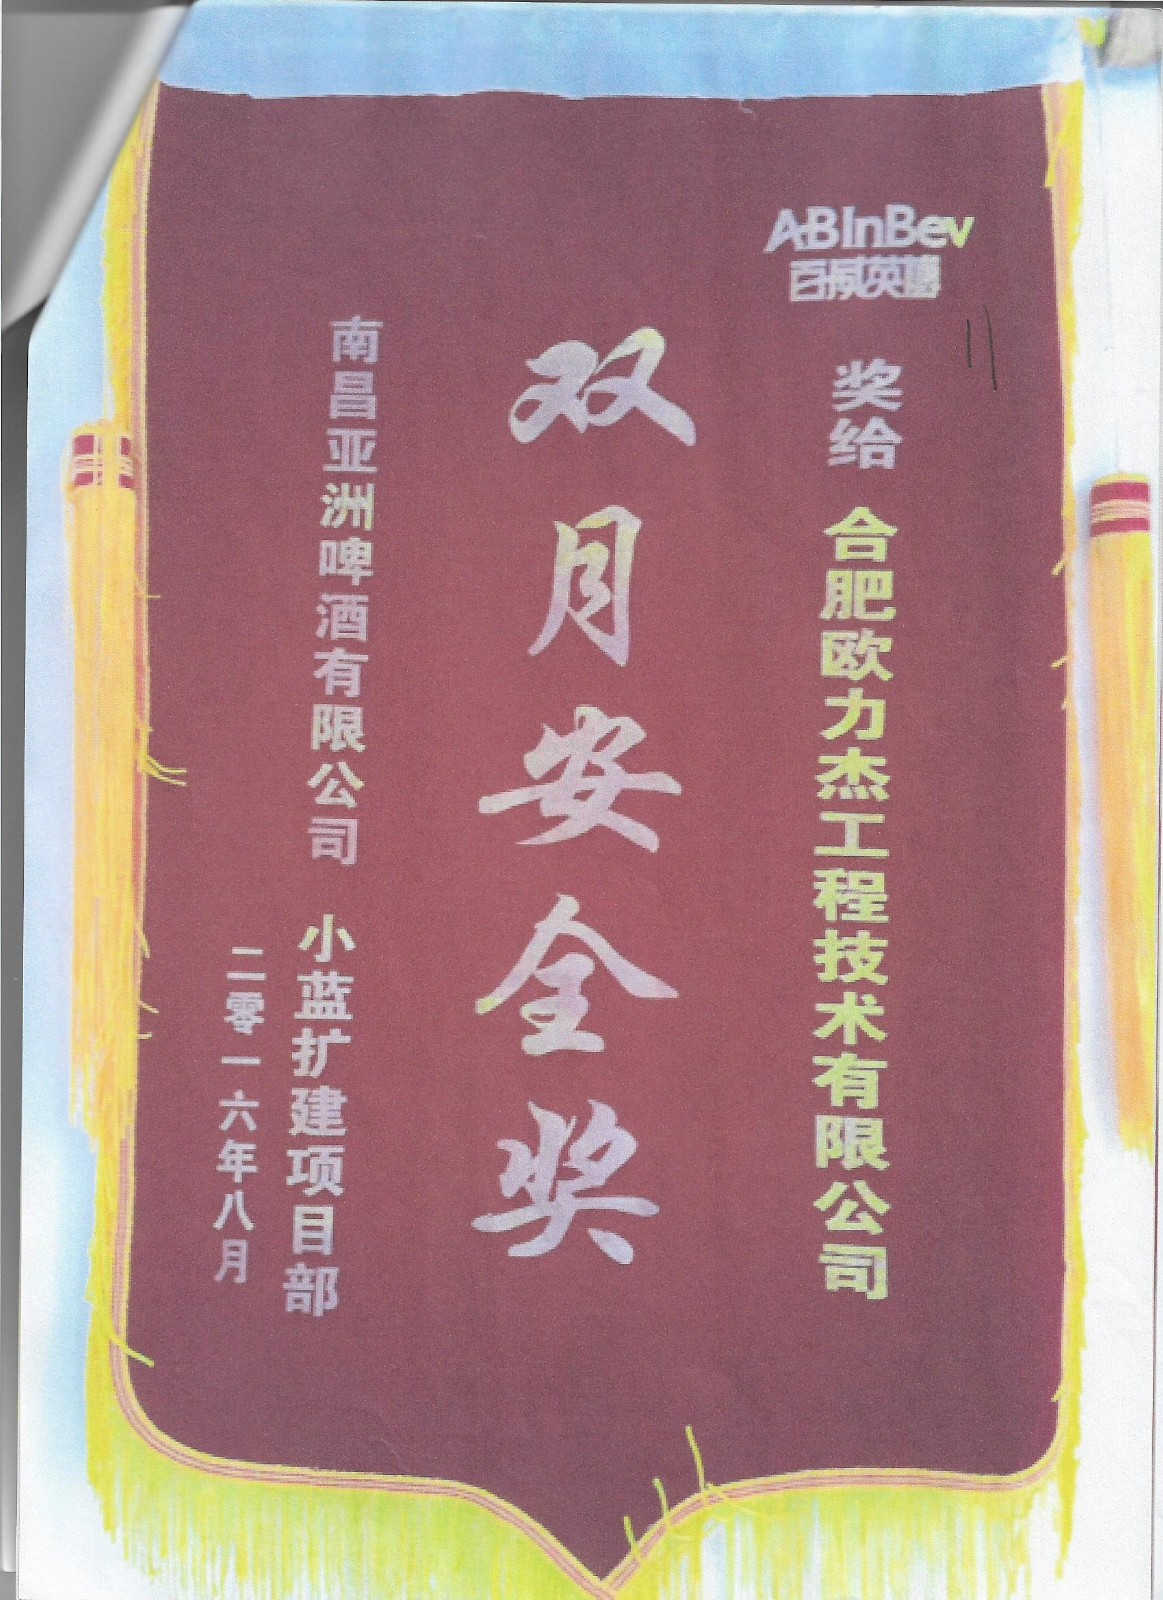 ABInBev
百威英博
奖给 合肥欧力杰工程技术有限公司
双月安全奖
南昌亚洲啤酒有限公司 小蓝扩建项目部
二零一六年八月